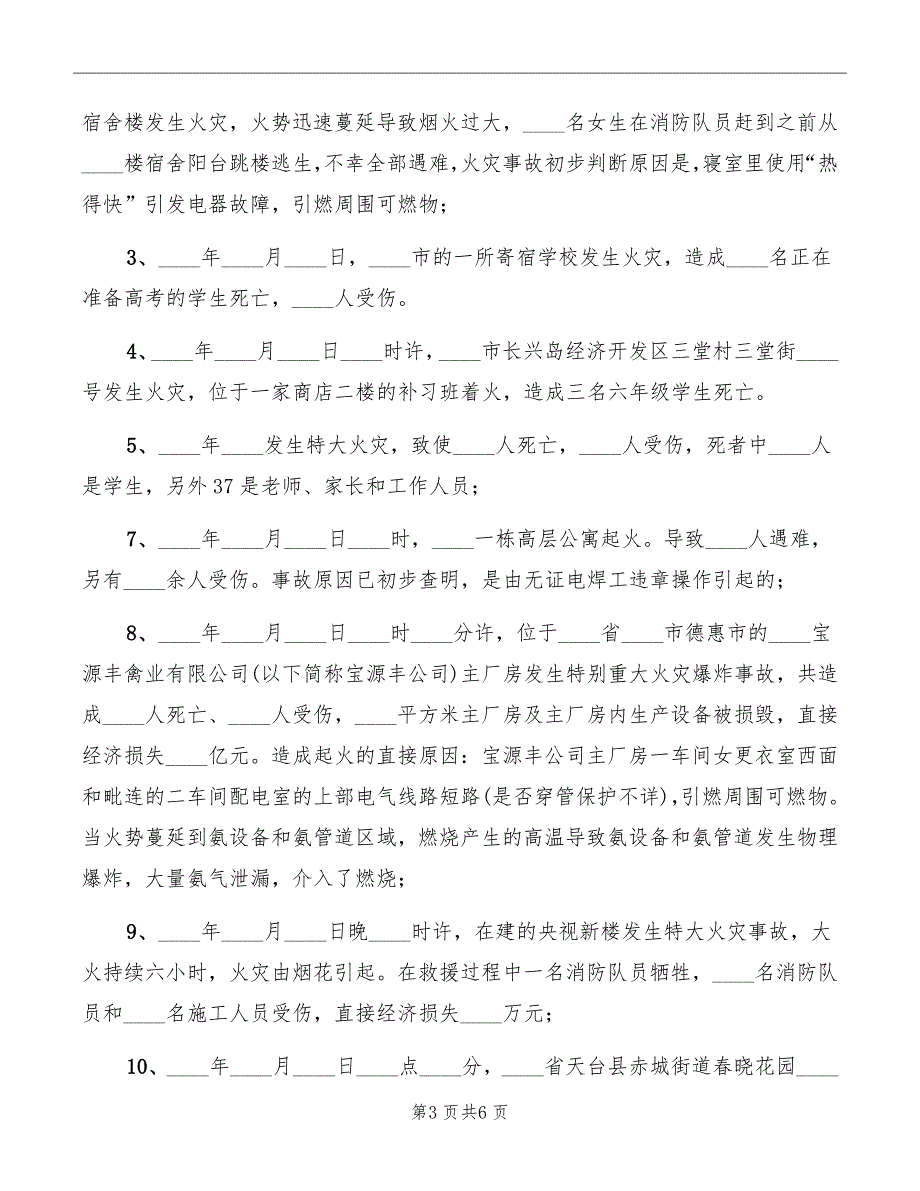 宿舍楼发生火灾，火势迅速蔓延导致烟火过大，____名女生在消防队员赶到之前从
____楼宿舍阳台跳楼逃生,不幸全部遇难,火灾事故初步判断原因是,寝室里使用“热
得快”引发电器故障，引燃周围可燃物；
3、____年____月____日，____市的一所寄宿学校发生火灾，造成____名正在
准备高考的学生死亡，____人受伤。
4、____年____月____日____时许，____市长兴岛经济开发区三堂村三堂街____
号发生火灾，位于一家商店二楼的补习班着火，造成三名六年级学生死亡。
5、____年____发生特大火灾，致使____人死亡，____人受伤，死者中____人
是学生，另外 37 是老师、家长和工作人员；
7、____年____月____日____时，____一栋高层公寓起火。导致____人遇难，
另有____余人受伤。事故原因已初步查明，是由无证电焊工违章操作引起的；
8、____年____月____日____时____分许，位于____省____市德惠市的____宝
源丰禽业有限公司(以下简称宝源丰公司)主厂房发生特别重大火灾爆炸事故，共造
成____人死亡、____人受伤，____平方米主厂房及主厂房内生产设备被损毁，直接
经济损失____亿元。造成起火的直接原因：宝源丰公司主厂房一车间女更衣室西面
和毗连的二车间配电室的上部电气线路短路(是否穿管保护不详),引燃周围可燃物。
当火势蔓延到氨设备和氨管道区域，燃烧产生的高温导致氨设备和氨管道发生物理
爆炸，大量氨气泄漏，介入了燃烧；
9、____年____月____日晚____时许，在建的央视新楼发生特大火灾事故，大
火持续六小时，火灾由烟花引起。在救援过程中一名消防队员牺牲，____名消防队
员和____名施工人员受伤，直接经济损失____万元；
10、____年____月____日____点____分，____省天台县赤城街道春晓花园____
第3 页共6 页